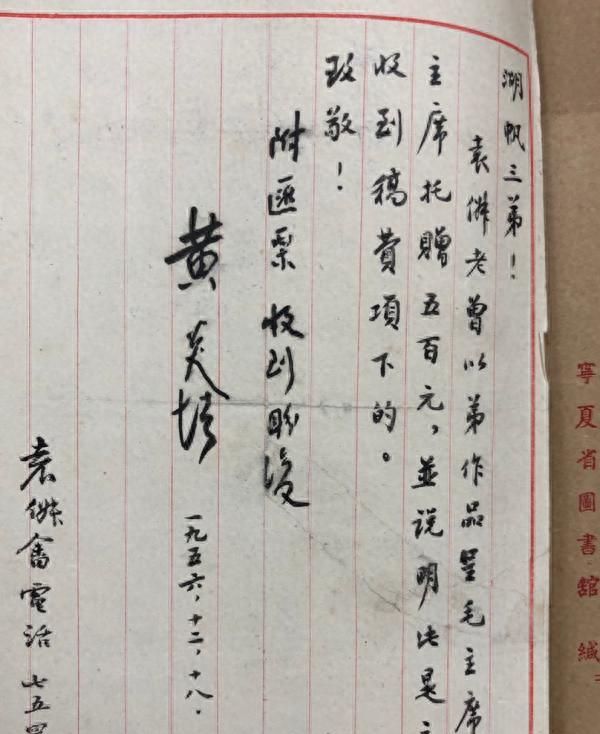 湖帆三弟！
袁佛老曾以弟作品呈毛主席
主席托贈五百元，並说明此是
收到稿費項下的。
致敬！
附匯票收到盼復
黄炎培
一九五六，十二，十八．
袁 畬電话七五
寧夏省圖書館緘